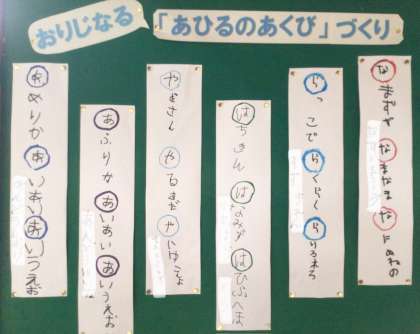 おりじなる「あひるのあくび」づくり
なまなま なにぬねの
らっこで らくらく らりるれろ
はちさん はなみず はひふへほ
やいゆえよ
あふりか あいあい あいうえお
あめりか あいあい あいうえお